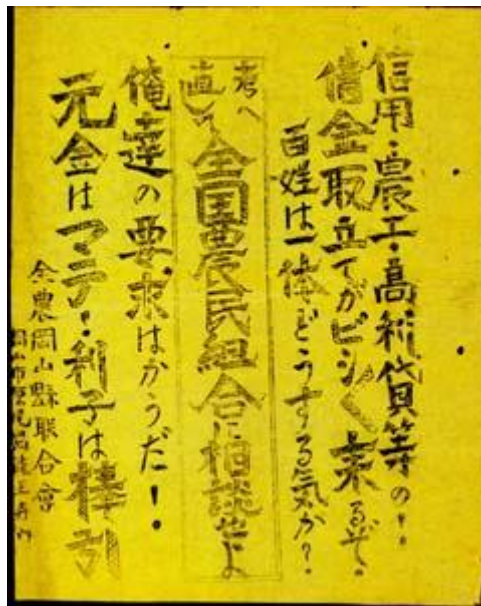 信用・農工・高利貸等の・・
借金取立てがビシ〱来るぞ・
百姓は一体どうする気か?
考へ直して全国農民組合に相談せよ
俺達の要求はかうだ!・
元金はマテ!利子は棒引
全農岡山縣联合會
岡山市